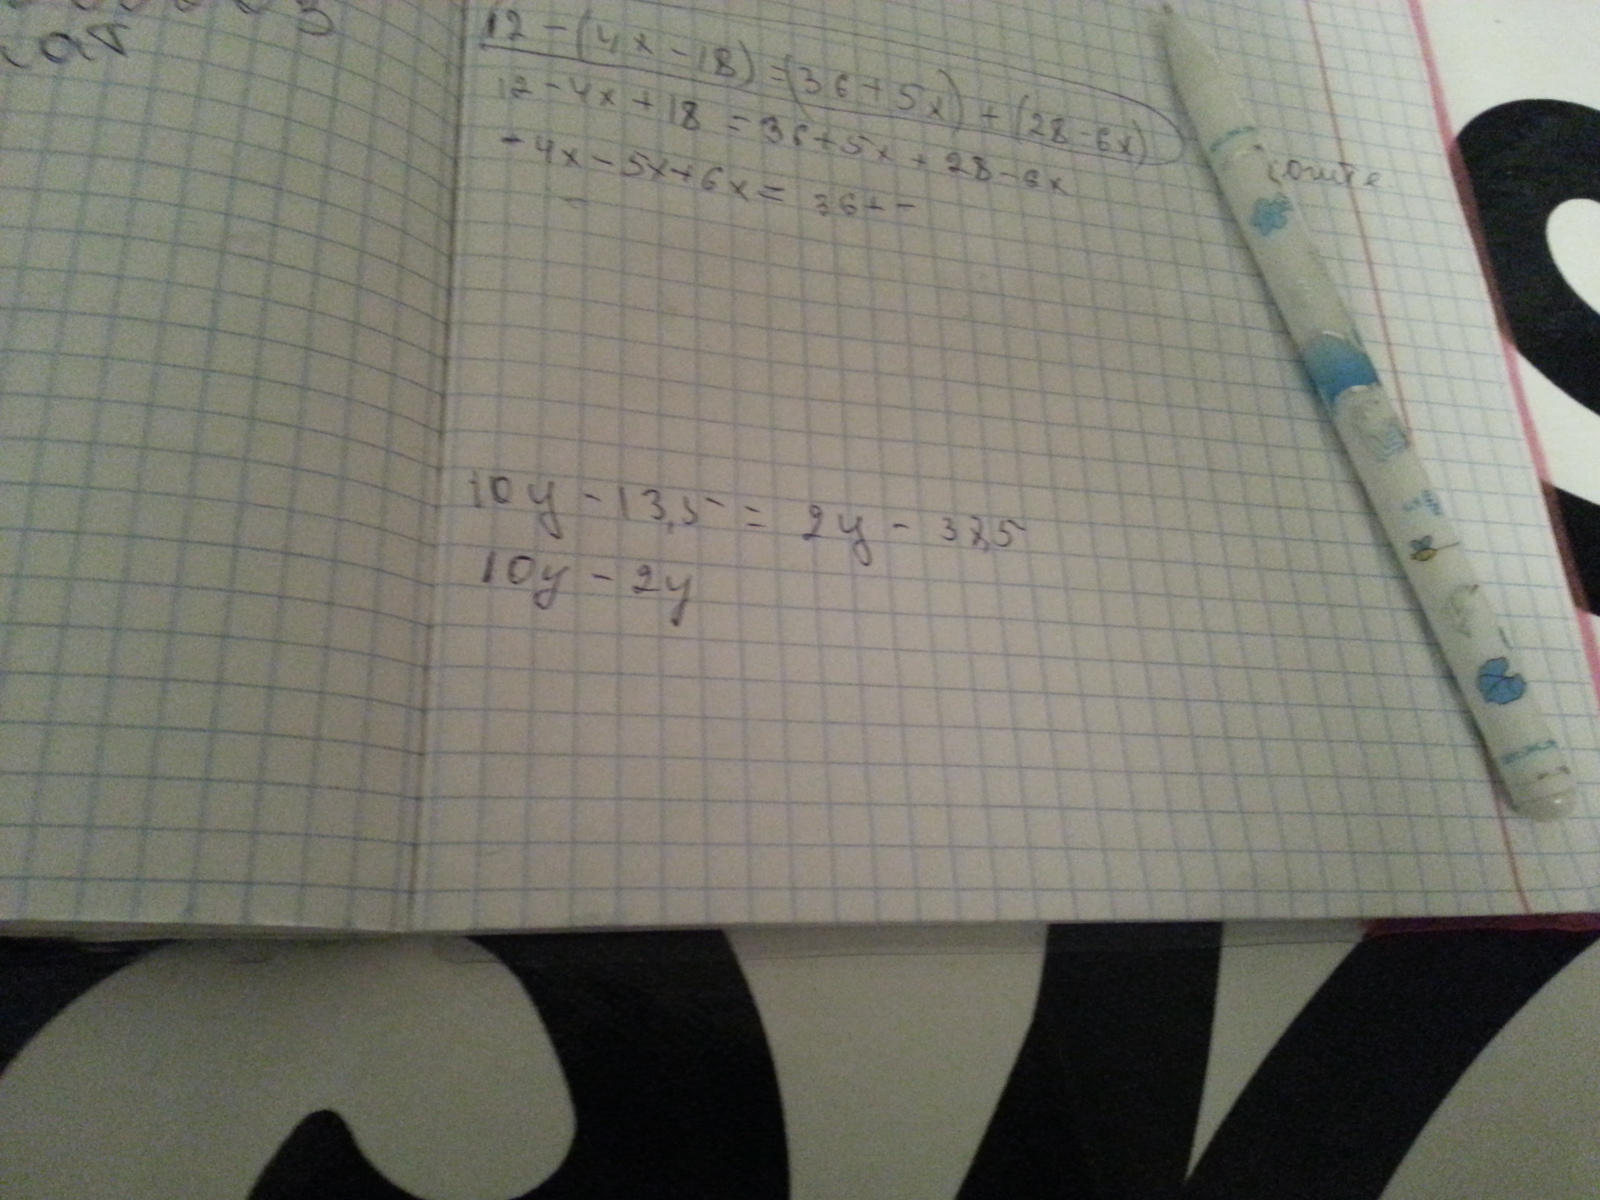 12 - (4x - 18) = (36 + 5x) + (28 - 6x)
12 - 4x + 18 = 36 + 5x + 28 - 6x
- 4x - 5x + 6x = 36 + -
10y - 13,5 = 2y - 37,5
10y - 2y